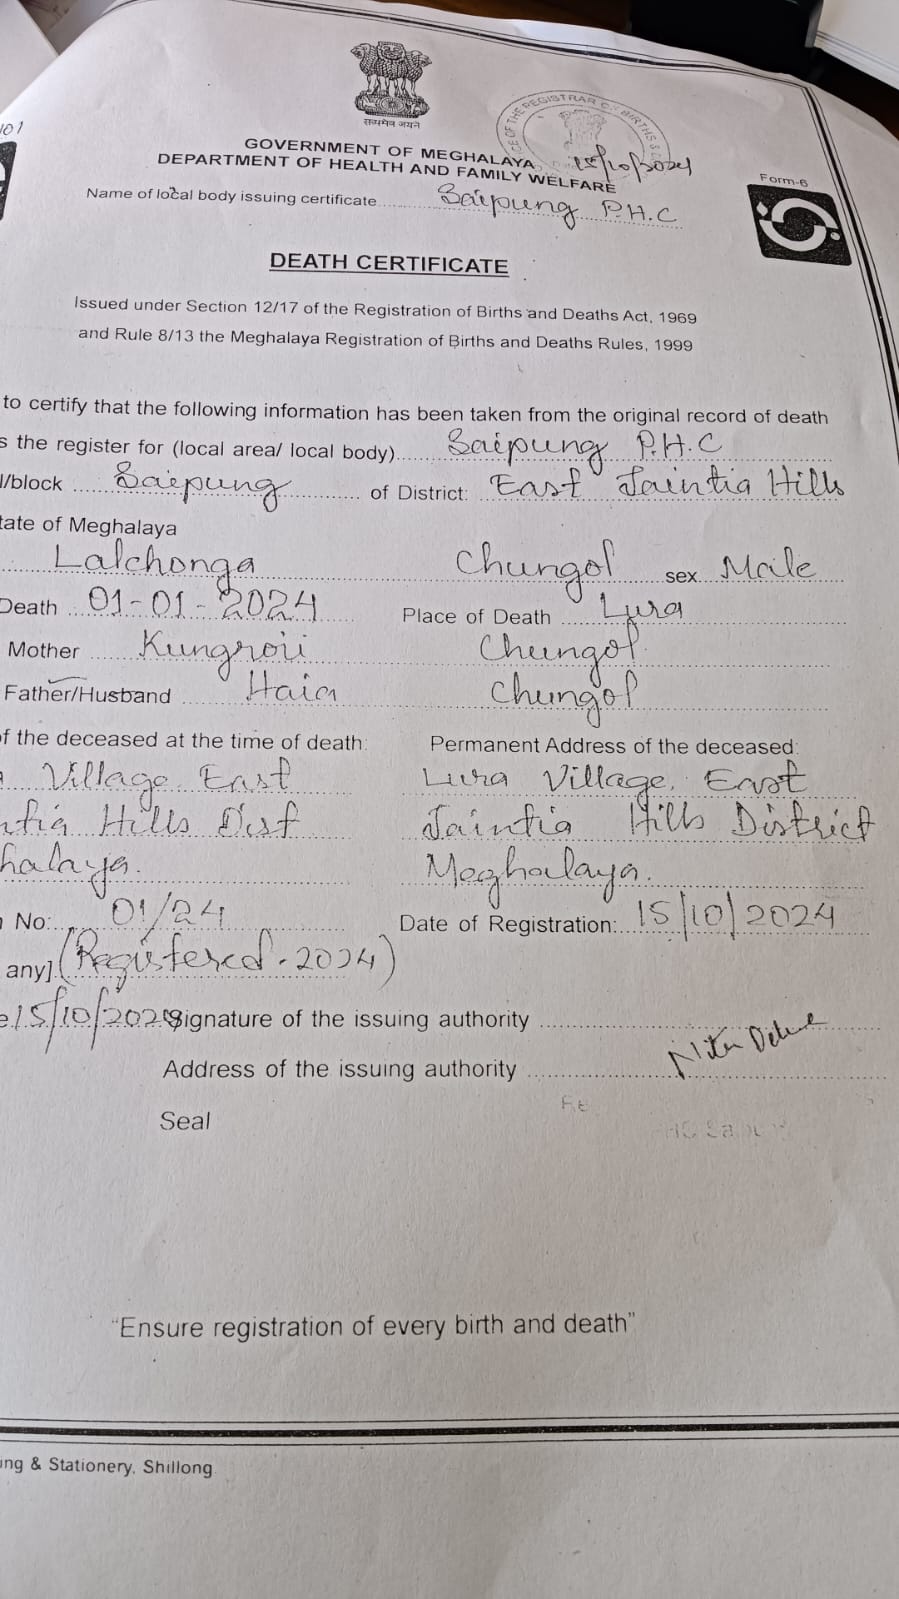 101
सत्यमेव जयते
GOVERNMENT OF MEGHALAYA
15/10/2024
DEPARTMENT OF HEALTH AND FAMILY WELFARE
Form-6
Name of local body issuing certificate Saipung P.H.C
DEATH CERTIFICATE
Issued under Section 12/17 of the Registration of Births and Deaths Act, 1969
and Rule 8/13 the Meghalaya Registration of Births and Deaths Rules, 1999
to certify that the following information has been taken from the original record of death
s the register for (local area/ local body) Saipung P.H.C
l/block Saipung of District: East Jaintia Hills
tate of Meghalaya
Lalchonga Chungol sex Male
Death 01-01-2024 Place of Death Lura
Mother Kungroii Chungol
Father/Husband Haia Chungol
f the deceased at the time of death: Permanent Address of the deceased:
Village East Lura Village, East
ntia Hills Dist Jaintia Hills District
halaya. Meghalaya.
No: 01/24 Date of Registration: 15/10/2024
any] (Registered-2024)
e 15/10/2024 Signature of the issuing authority
Address of the issuing authority
Seal
"Ensure registration of every birth and death"
ing & Stationery, Shillong